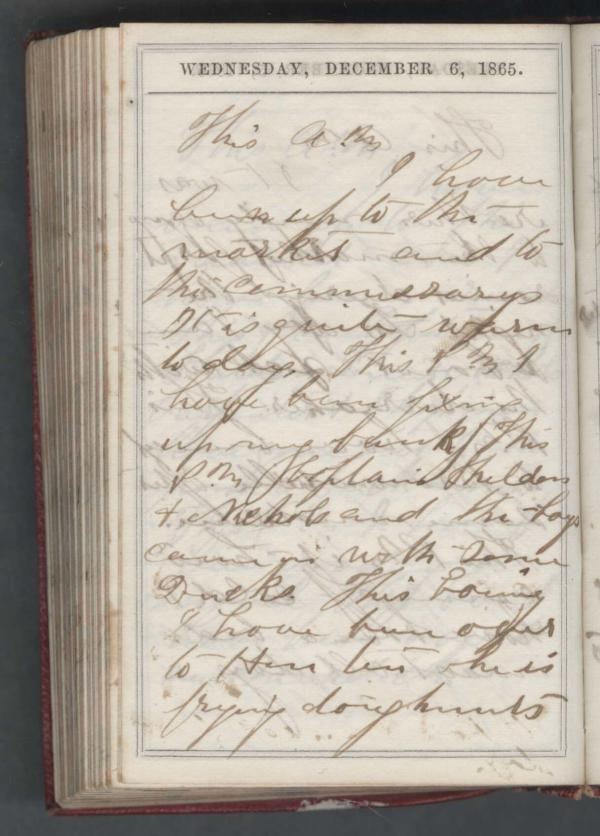 WEDNESDAY, DECEMBER 6, 1865.
This A.M
I have
been up to the
market and to
the commissarys
It is quite warm
to day. This P.M I
have been fixing
up my bunk This
P.M Chaplain Shelden
& Nichols and the boys
came in with some
Ducks. This Evening
I have been over
to he is
frying doughnuts